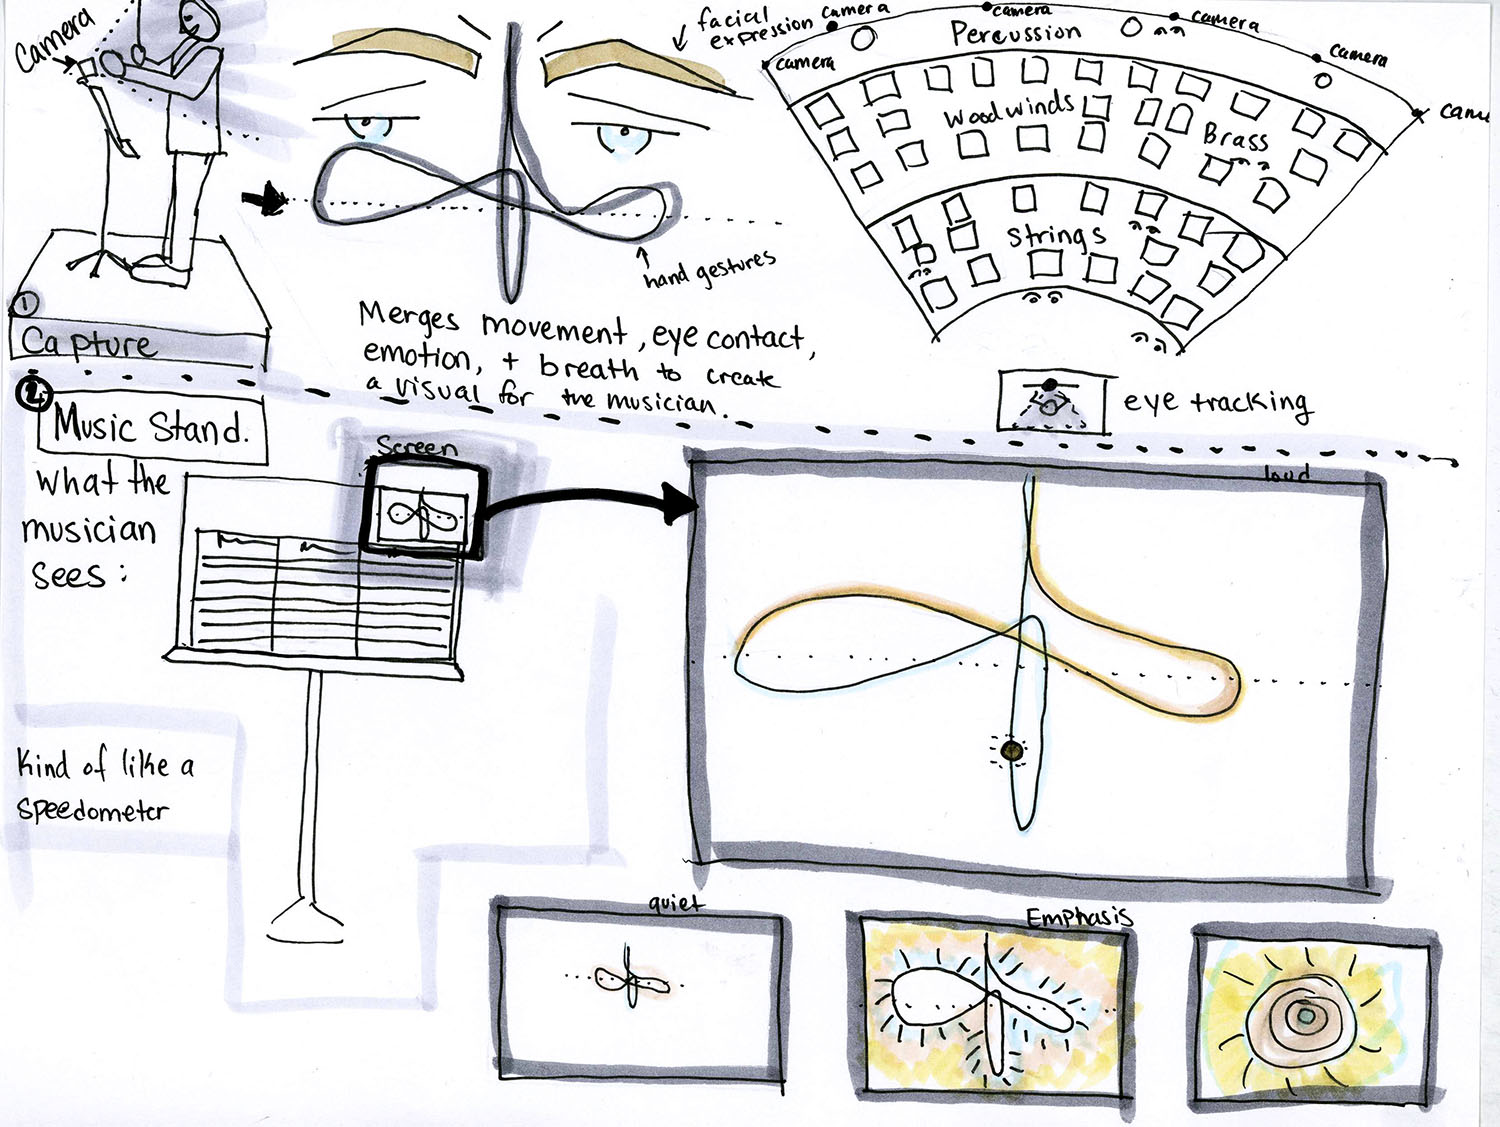 Camera
facial
expression
camera
camera
camera
camera
camera
Percussion
Woodwinds
Brass
Strings
hand gestures
1
Capture
Merges movement, eye contact,
emotion, + breath to create
a visual for the musician.
eye tracking
2
Music Stand.
what the
musician
sees:
Screen
loud
Kind of like a
speedometer
quiet
Emphasis